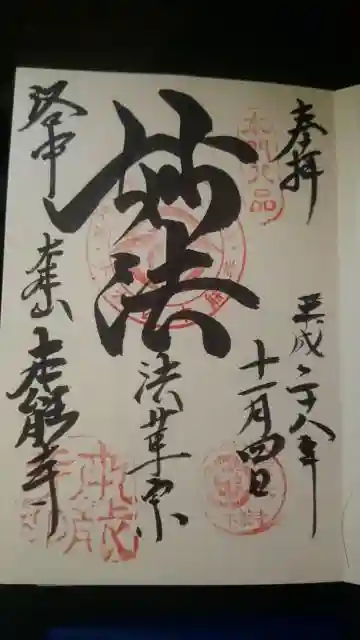 奉拝
平成二十八年
十一月四日
本門八品
妙法
法華宗
大本山
本能寺